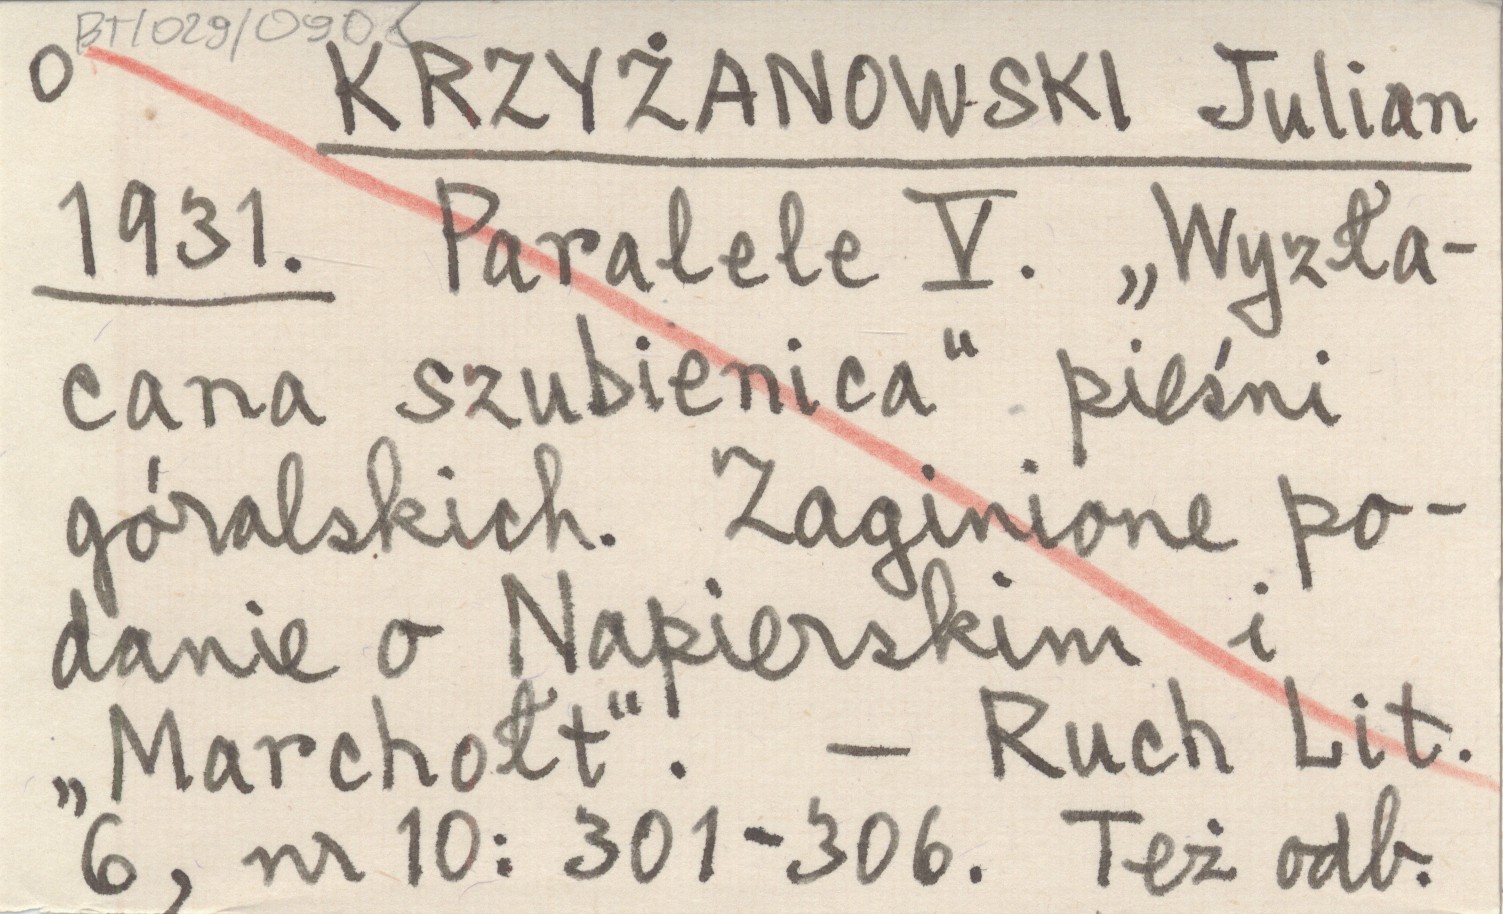 BT/029/0906
O KRZYŻANOWSKI Julian
1931. Paralele V. „Wyzła-
cana szubienica" pieśni
góralskich. Zaginione po-
danie o Napierskim i
„Marchołt". — Ruch Lit.
6, nr 10: 301-306. Też odb.